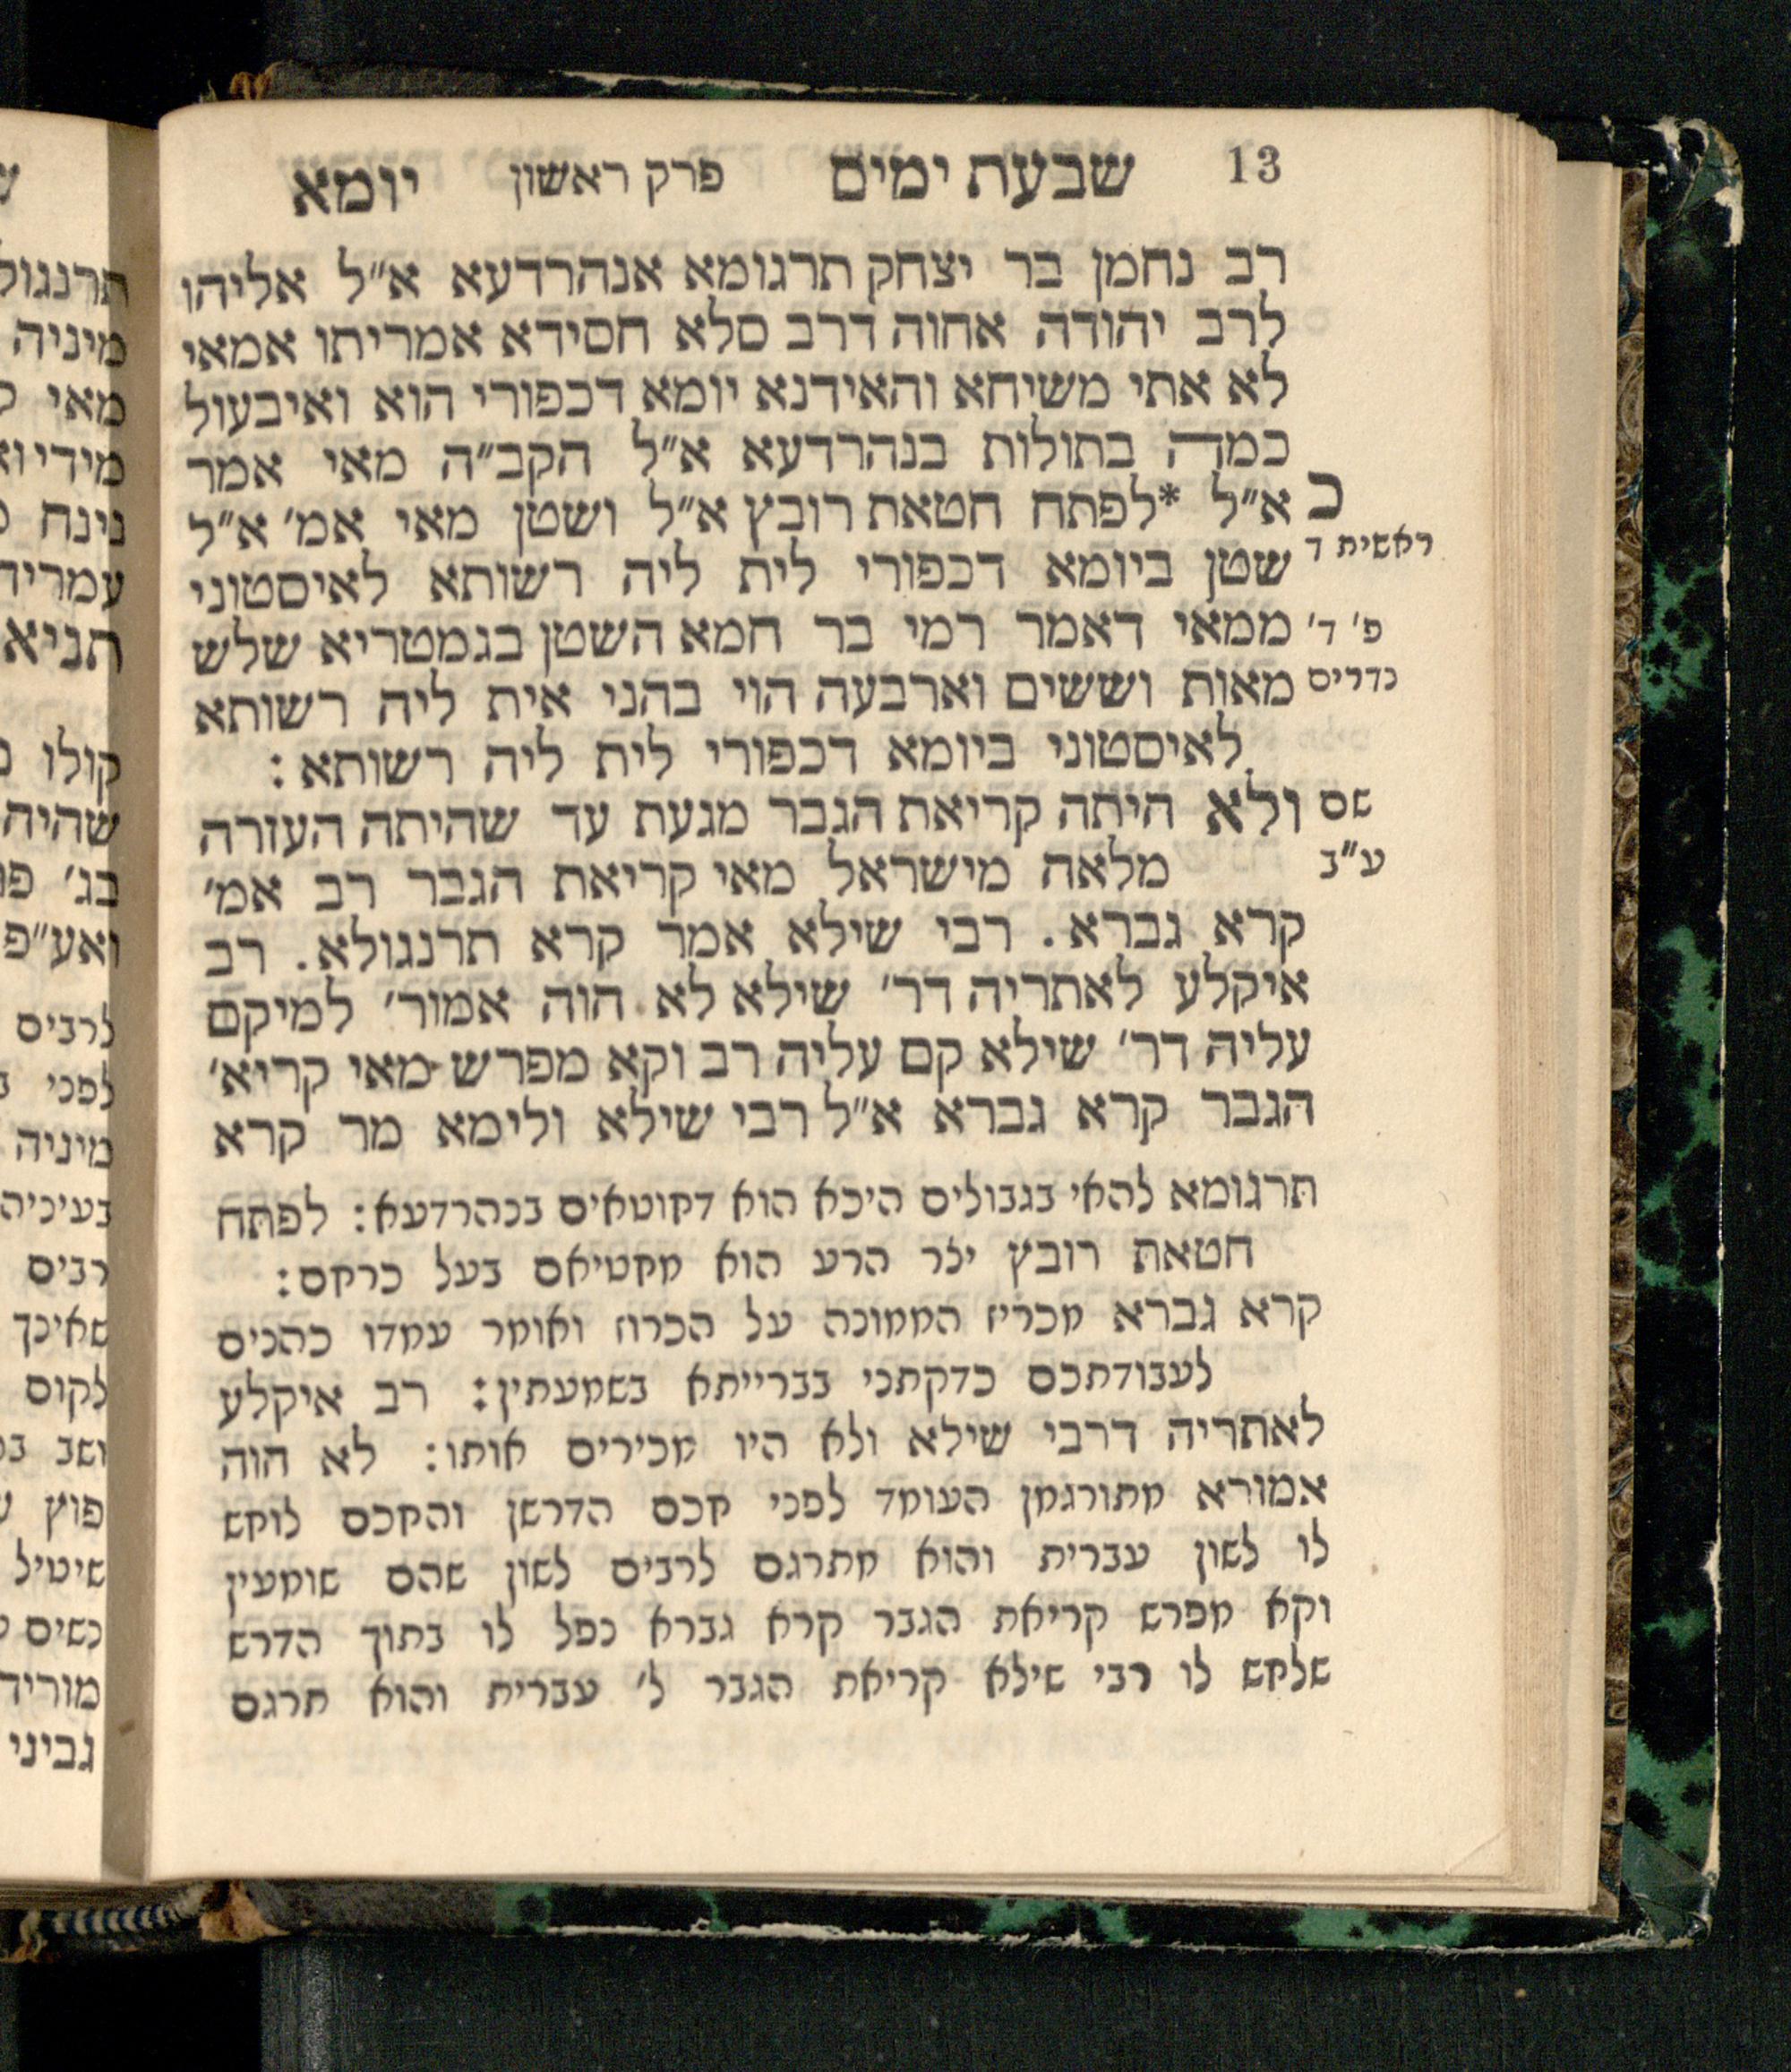 13 שבעת ימים פרק ראשון יומא
רב נחמן בר יצחק תרגומא אנהרדעא א״ל אליהו
לרב יהודה אחוה דרב סלא חסידא אמריתו אמאי
לא אתי משיחא והאידנא יומא דכפורי הוא ואיבעול
כמה בתולות בנהרדעא א״ל הקב״ה מאי אמר
כ א״ל *לפתח חטאת רובץ א״ל ושטן מאי אמ׳ א״ל
ראשית ד שטן ביומא דכפורי לית ליה רשותא לאיסטוני
פ׳ ד׳ ממאי דאמר רמי בר חמא השטן בגמטריא שלש
נדרים מאות וששים וארבעה הוי בהני אית ליה רשותא
לאיסטוני ביומא דכפורי לית ליה רשותא :
שם ולא היתה קריאת הגבר מגעת עד שהיתה העזרה
ע״ב מלאה מישראל מאי קריאת הגבר רב אמ׳
קרא גברא . רבי שילא אמר קרא תרנגולא . רב
איקלע לאתריה דר׳ שילא לא הוה אמור׳ למיקם
עליה דר׳ שילא קם עליה רב וקא מפרש מאי קריא׳
הגבר קרא גברא א״ל רבי שילא ולימא מר קרא
תרגומא להאי בגבולים היכא הוא דחוטאים בנהרדעא : לפתח
חטאת רובץ יצר הרע הוא מחטיאם בעל כרחם :
קרא גברא מכריז הממונה על הכרוז ואומר עמדו כהנים
לעבודתכם כדקתני בברייתא בשמעתין : רב איקלע
לאתריה דרבי שילא ולא היו מכירים אותו : לא הוה
אמורא מתורגמן העומד לפני חכם הדרשן והחכם לוחש
לו לשון עברית והוא מתרגם לרבים לשון שהם שומעין
וקא מפרש קריאת הגבר קרא גברא כפל לו בתוך הדרש
שלחש לו רבי שילא קריאת הגבר ל׳ עברית והוא תרגם
תרנגול
מיניה
מאי
מידי
נינח
תניא
קולו
שהיה
בג׳
ואע״פ
לרבים
לפני
מיניה
רבים
שאינך
לקום
ושב
פוץ
שיטיל
נשים
מוריד
גביני